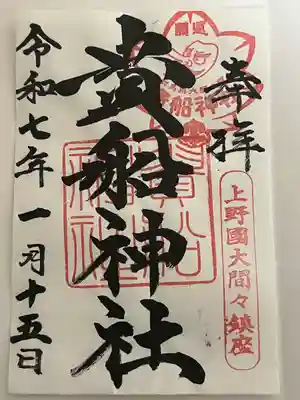 奉拝
上野國大間々鎮座
貴船神社
貴船神社
令和七年一月十五日